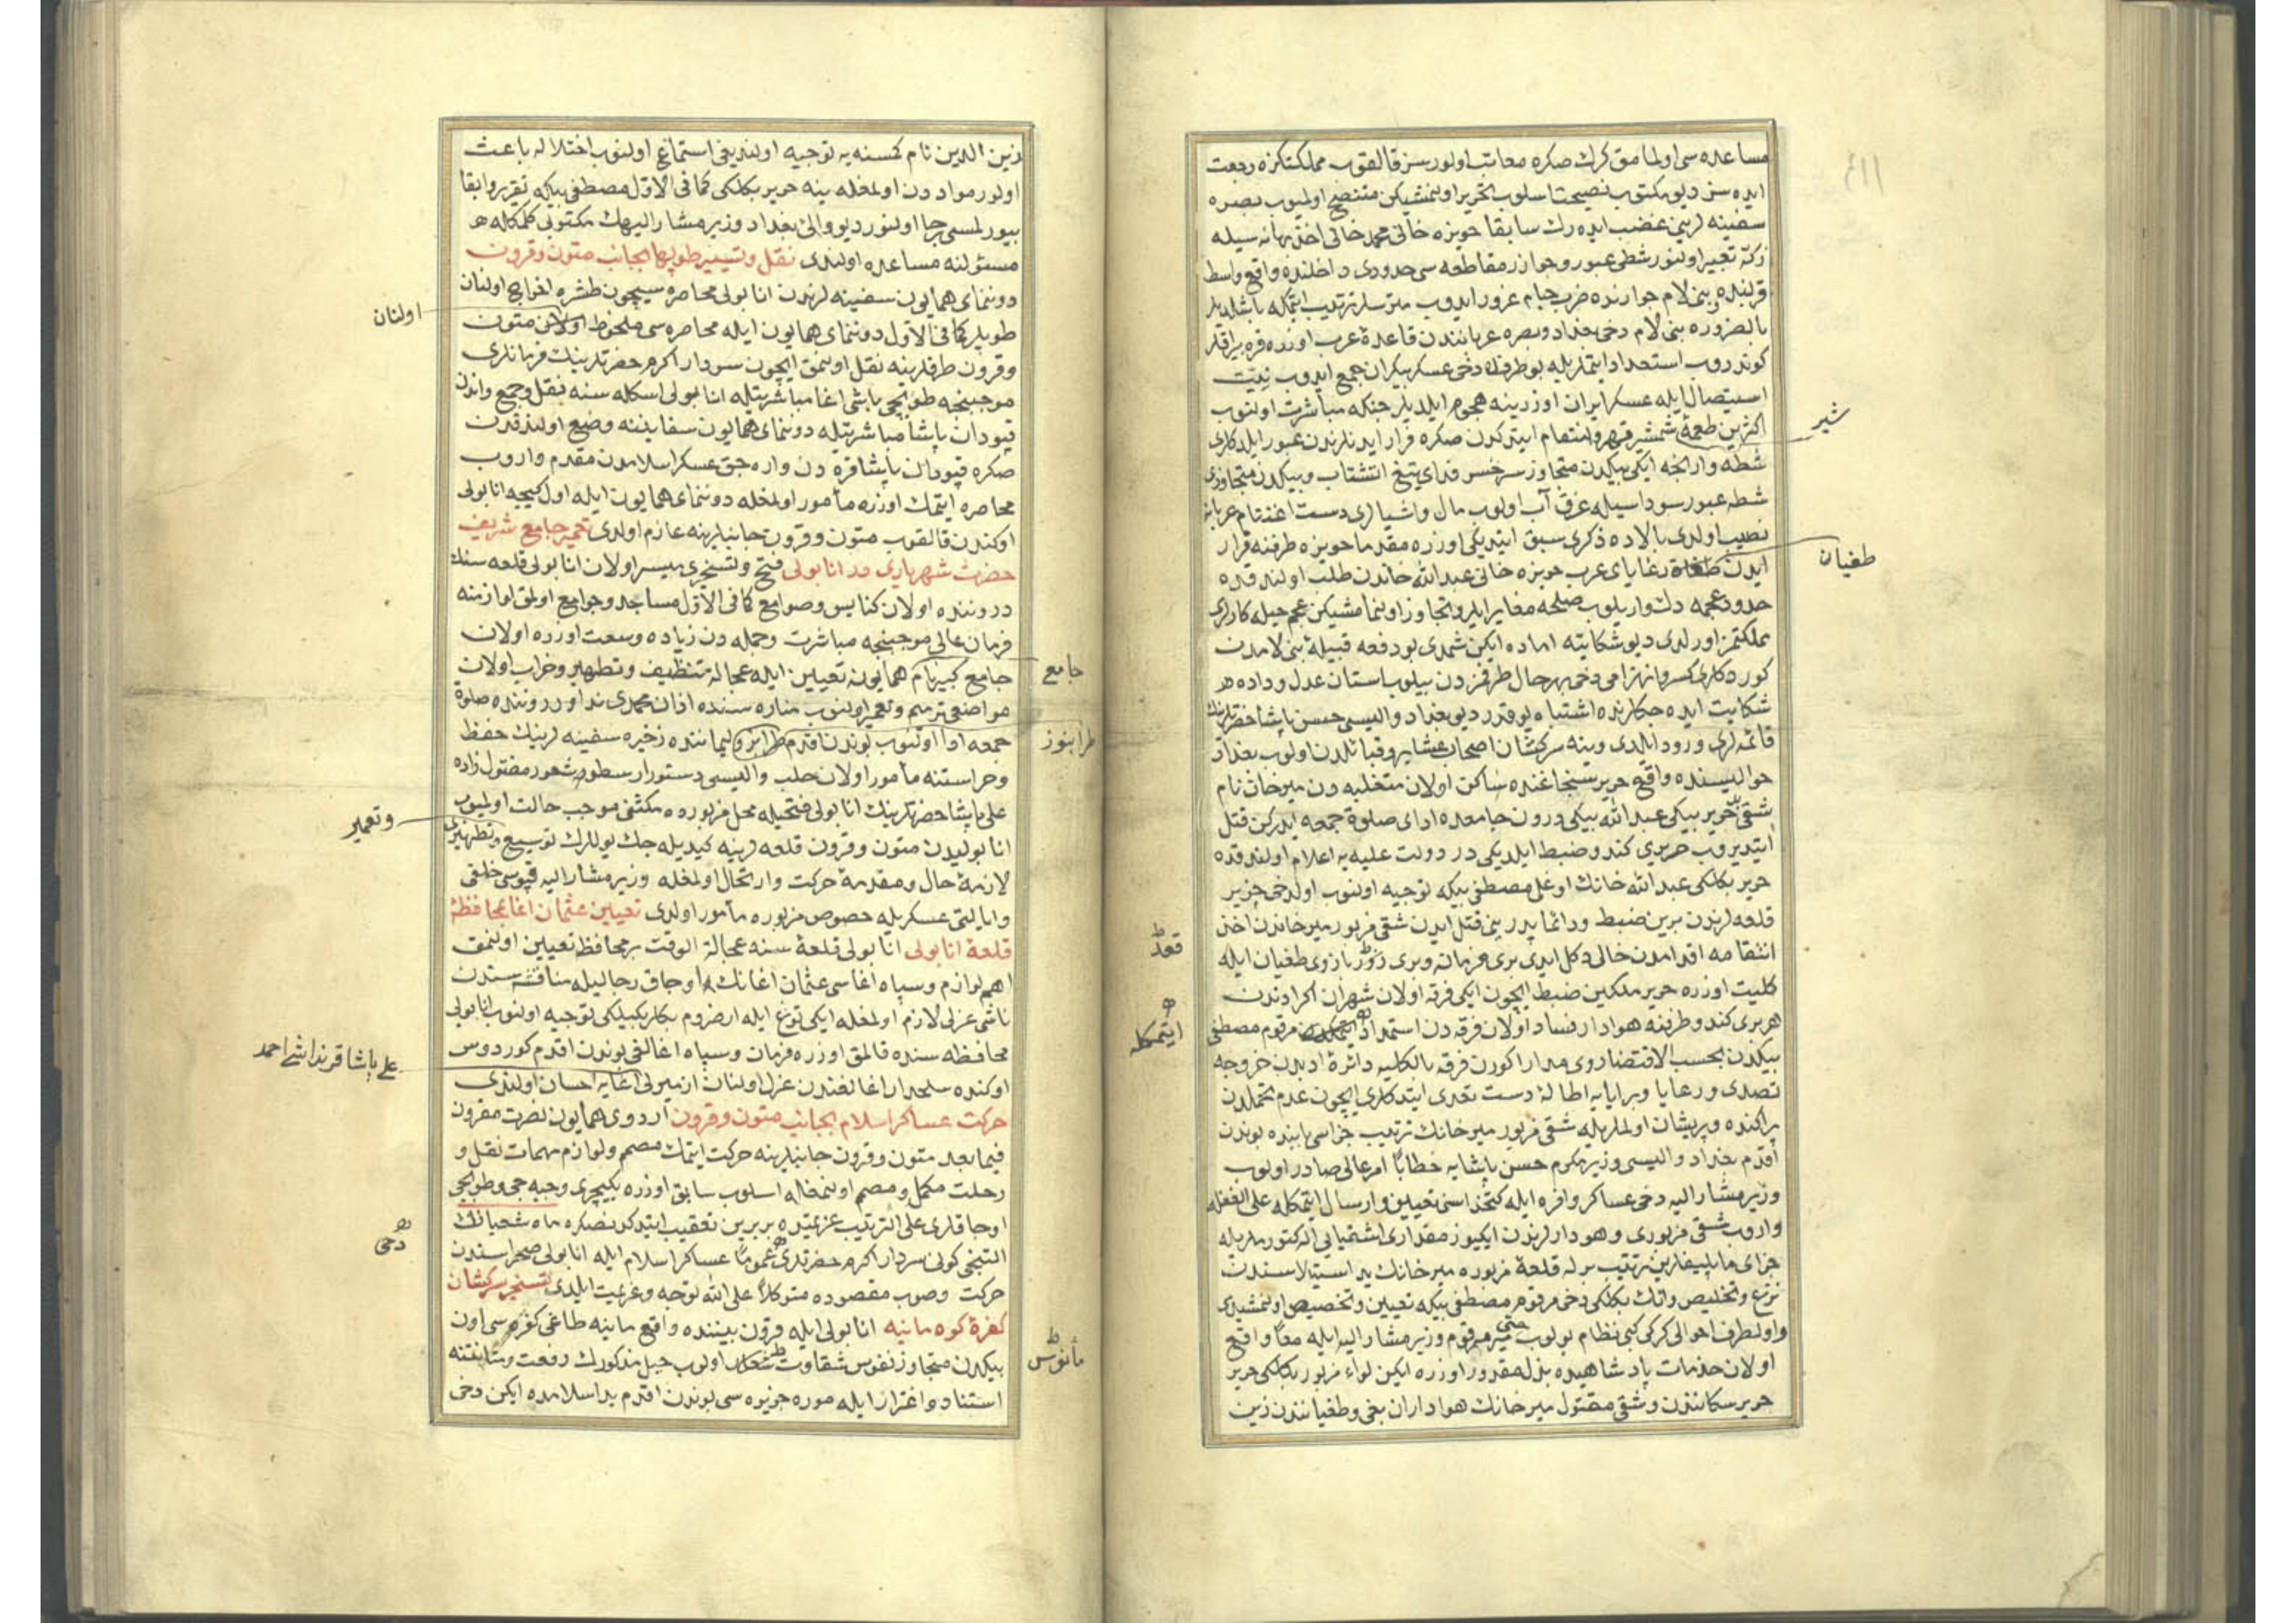 ٤١١
مساعده سى اولمامق كرك صكره معاتب اولورسز قالقوب مملكتكزه رجعت
ايده سز ديو مكتوب نصيحت اسلوب تحرير اولنمشيكن متنصح اولميوب بصره
سفينه لرينى غضب ايده رك سابقا حويزه خانى محمد خانى اخذ بهانه سيله
زكيه تعبير اولنور شطى عبور وجوازر مقاطعه سى حدودى داخلنده واقع واسط
قربنده بنى لام جوارنده ضرب خيام غرور ايدوب متوسلر ترتيب ايتمكه باشلديلر
بالضروره بنى لام دخى بغداد وبصره عرباننندن قاعدۀ عرب اوزره قره بيراقلر
كوندروب استمداد ايتملريله بو طرفدن دخى عسكر بيكران جمع ايدوب نيت
استيصال ايله عسكر ايران اوزرينه هجوم ايلديلر جنكه مباشرت اولنوب
اكثرين طعمۀ شمشير قهر وانتقام ايتدكدن صكره فرار ايدنلرندن عبور ايلدكلرى
شير
شطه وارنجه ايكى بيكدن متجاوز سر خسر فداى تيغ انتشتاب وبيكدن متجاوزى
شطه عبور سوداسيله غرق آب اولوب مال واشيالرى دست اغتنام عربانه
نصيب اولدى بالاده ذكرى سبق ايتديكى اوزره مقدما حويزه طرفنه فرار
ايدن طغات رعاياى عرب حويزه خانى عبدالله خاندن طلب اولندقده
طغيان
حدود عجمه دك واريلوب صلحه مغاير ايلرو تجاوز اولنمامشيكن عجم حيله كارلرى
مملكتمز اورلدى ديو شكايته اماده ايكن شمدى بو دفعه قبيلۀ بنى لامدن
كوردكلرى كسر وانهزامى دخى بهرحال طرفمزدن بيلوب استان عدل وداده
شكايت ايده جكلرنده اشتباه يوقدر ديو بغداد واليسى حسن پاشا حضرتلرينك
قائمه لرى ورود ايلدى وينه سركشان اصحاب عشاير وقبائلدن اولوب بغداد
حواليسنده واقع حرير سنجاغنده ساكن اولان متغلبه دن ميرخان نام
شقى حرير بيكى عبدالله بيكى درون جامعده اداى صلوة جمعه ايدركن قتل
ايتديروب حريرى كندو ضبط ايلديكى در دولت عليه يه اعلام اولندقده
حرير بكلكى عبدالله خانك اوغلى مصطفى بيكه توجيه اولنوب اولدخى حرير
قلعه لرندن برين ضبط ودائما پدرينى قتل ايدن شقى مزبور ميرخاندن اخذ
انتقامه اقدامدن خالى دكل ايدى برى فرمانه وبرى زور بازوى طغيان ايله
قعد
كليت اوزره حرير ملكين ضبط ايچون ايكى فرقه اولان شهران اكرادندن
هر برى كندو طرفينه هوادار فساد اولان فرقه دن استمداد ايتمكدن مرقوم مصطفى
ايتمكله
بيكدن بحسب الاقتضا روى مدارا كورن فرقه بالكليه دائرۀ ادبدن خروجه
تصدى ورعايا وبرايايه اطالۀ دست تعدى ايتدكلرى ايچون عدم تحملدن
پراكنده وپريشان اولملريله شقى مزبور ميرخانك ترتيب جزاسى بابنده بوندن
اقدم بغداد واليسى وزير مكرم حسن پاشايه خطابا امر عالى صادر اولوب
وزير مشاراليه دخى عساكر وافره ايله كتخداسنى تعيين وارسال ايتمكله على الغفله
واروب شقى مزبورى وهودارلرندن ايكيوز مقدارى اشقيايى اله كتورملريله
جزاى مايليقلرين ترتيب برله قلعۀ مزبوره ميرخانك يد استيلاسندن
نزع وتخليص وانك بكلكى دخى مرقوم مصطفى بيكه تعيين وتخصيص اولنمشيدى
واولطرف احوالى كركى كبى نظام بولوب حتى مير مرقوم وزير مشاراليه ايله معا واقع
اولان خدمات پادشاهيده بذل مقدور اوزره ايكن لواء مزبور بكلكى حرير
حرير سكانندن وشقى مقتول ميرخانك هواداران بغى وطغياننندن زين
زين الدين نام كمسنه يه توجيه اولنديغى استماع اولنوب اختلاله باعث
اولور مواددن اولمغله ينه حرير بكلكى كما فى الاول مصطفى بيكه تقرير وابقا
بيورلمسى رجا اولنور ديو والئ بغداد وزير مشاراليهك مكتوبى كلمكله
مسئولنه مساعده اولندى نقل وتسيير طوپها بجانب متون وقرون
دوننماى همايون سفينه لرندن انابولى محاصره سيچون طشره اخراج اولنان
طوپلر كما فى الاول دوننماى همايون ايله محاصره سى ملحوظ اولان متون
اولنان
وقرون طرفلرينه نقل اولنمق ايچون سردار اكرم حضرتلرينك فرمانلرى
موجبنجه طوپجى باشى اغا مباشرتيله انابولى اسكله سنه نقل وجمع واندن
قپودان پاشا مباشرتيله دوننماى همايون سفايننه وضع اولندقدن
صكره قپودان پاشا قره دن واره جق عسكر اسلامدن مقدم واروب
محاصره ايتمك اوزره مأمور اولمغله دوننماى همايون ايله اول كيجه انابولى
اوكندن قالقوب متون وقرون جانبلرينه عازم اولدى تعمير جامع شريف
حضرت شهريارى در انابولى فتح وتسخيرى ميسر اولان انابولى قلعه سنك
دروننده اولان كنايس وصوامع كما فى الاول مساجد وجوامع اولمق لوازمنه
فرمان عالى موجبنجه مباشرت وجمله دن زياده وسعت اوزره اولان
جامع كبير نام همايونه تعيين ايله عجالة تنظيف وتطهير وخراب اولان
جامع
مواضعى ترميم وتعمير اولنوب مناره سنده اذان محمدى ندا ودروننده صلوة
جمعه ادا اولنوب بوندن اقدم طرابزو ليماننده ذخيره سفينه لرينك حفظ
طرابنوز
وحراستنه مأمور اولان حلب واليسى دستور ارسطو شعور مقتول زاده
على پاشا حضرتلرينك انابولى فتحيله محل مزبورده مكثى موجب حالت اولميوب
انابوليدن متون وقرون قلعه لرينه كيديله جك يوللرك توسيع وتطهيرى
وتعمير
لازمۀ حال ومقدمۀ حركت وارتحال اولمغله وزير مشاراليه قپوسى خلقى
وايالتى عسكريله خصوص مزبوره مأمور اولدى تعيين عثمان اغا بمحافظۀ
قلعۀ انابولى انابولى قلعه سنه عجالة الوقت بر محافظ تعيين اولنمق
اهم لوازم وسپاه اغاسى عثمان اغانك اوجاق رجاليله منافسه سندن
ناشى عزلى لازم اولمغله ايكى توغ ايله ارضروم بكلربكيلكى توجيه اولنوب انابولى
محافظه سنده قالمق اوزره فرمان وسپاه اغالغى بوندن اقدم كوردوس
اوكنده سلحدار اغالغندن عزل اولنان ازميرلى اغايه احسان اولندى
على پاشا قرنداشى احمد
حركت عساكر اسلام بجانب متون وقرون اردوى همايون نصرت مقرون
فيما بعد متون وقرون جانبلرينه حركت ايتمك مصمم ولوازم مهمات نقل و
رحلت مكمل ومصمم اولنمغله اسلوب سابق اوزره يكيچرى وجبه جى وطوپجى
اوجاقلرى على الترتيب عزيمتده بربرين تعقيب ايتدكدنصكره ماه شعبانك
التنجى كونى سردار اكرم حضرتلرى عموما عساكر اسلام ايله انابولى صحراسندن
دخى
حركت وصوب مقصوده متوكلا على الله توجه وعزيمت ايلدى تسخير سركشان
كفرۀ كوه مانيه انابولى ايله قرون بيننده واقع مانيه طاغى كفره سى اون
بيكدن متجاوز نفوس شقاوت شعار اولوب جبل مذكورك رفعت ومتانتنه
مأنوس
استناد واغترار ايله موره جزيره سى بوندن اقدم يد اسلامده ايكن دخى